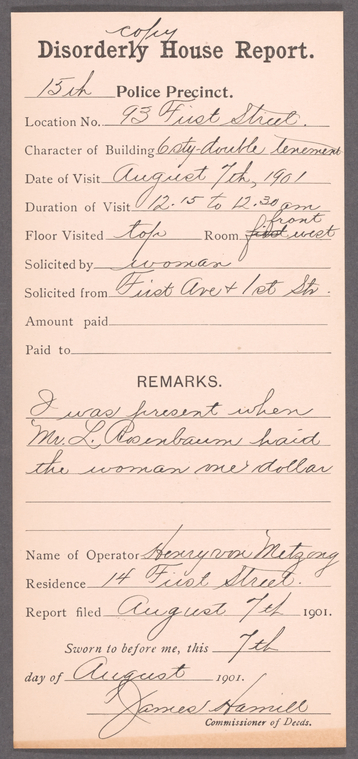 copy
Disorderly House Report.
15th Police Precinct.
Location No. 93 First Street.
Character of Building 6 sty double tenement
Date of Visit August 7th, 1901
Duration of Visit 12.15 to 12.30 am
Floor Visited top Room front west
Solicited by woman
Solicited from First Ave & 1st Str.
Amount paid
Paid to
REMARKS.
I was present when
Mr. L. Rosenbaum paid
the woman one dollar
Name of Operator Henry von Metzong
Residence 14 First Street.
Report filed August 7th 1901.
Sworn to before me, this 7th
day of August 1901.
James Hamill
Commissioner of Deeds.